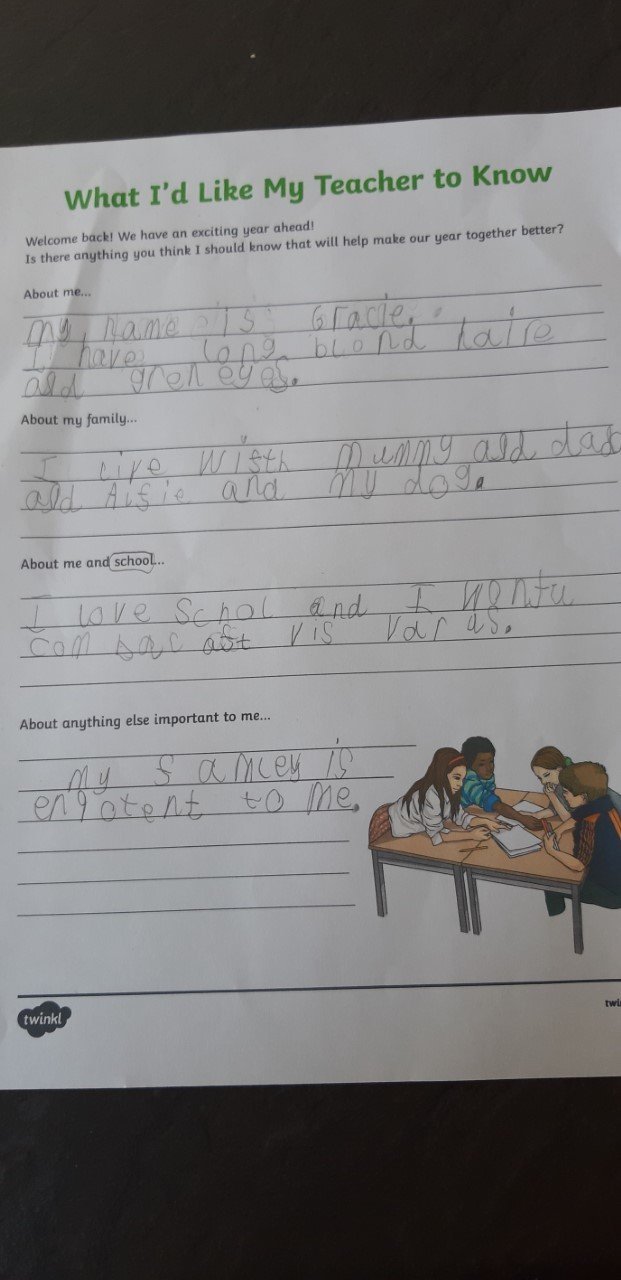 What I'd Like My Teacher to Know
Welcome back! We have an exciting year ahead!
Is there anything you think I should know that will help make our year together better?
About me...
my name is Gracie.
I have long blond haire
ald gren eyes.
About my family...
I live with mummy ald dad
ald Alfie and my dog.
About me and school...
I love Schol and I wontu
com bac aft vis var as.
About anything else important to me...
my famley is
engotent to me.
twinkl